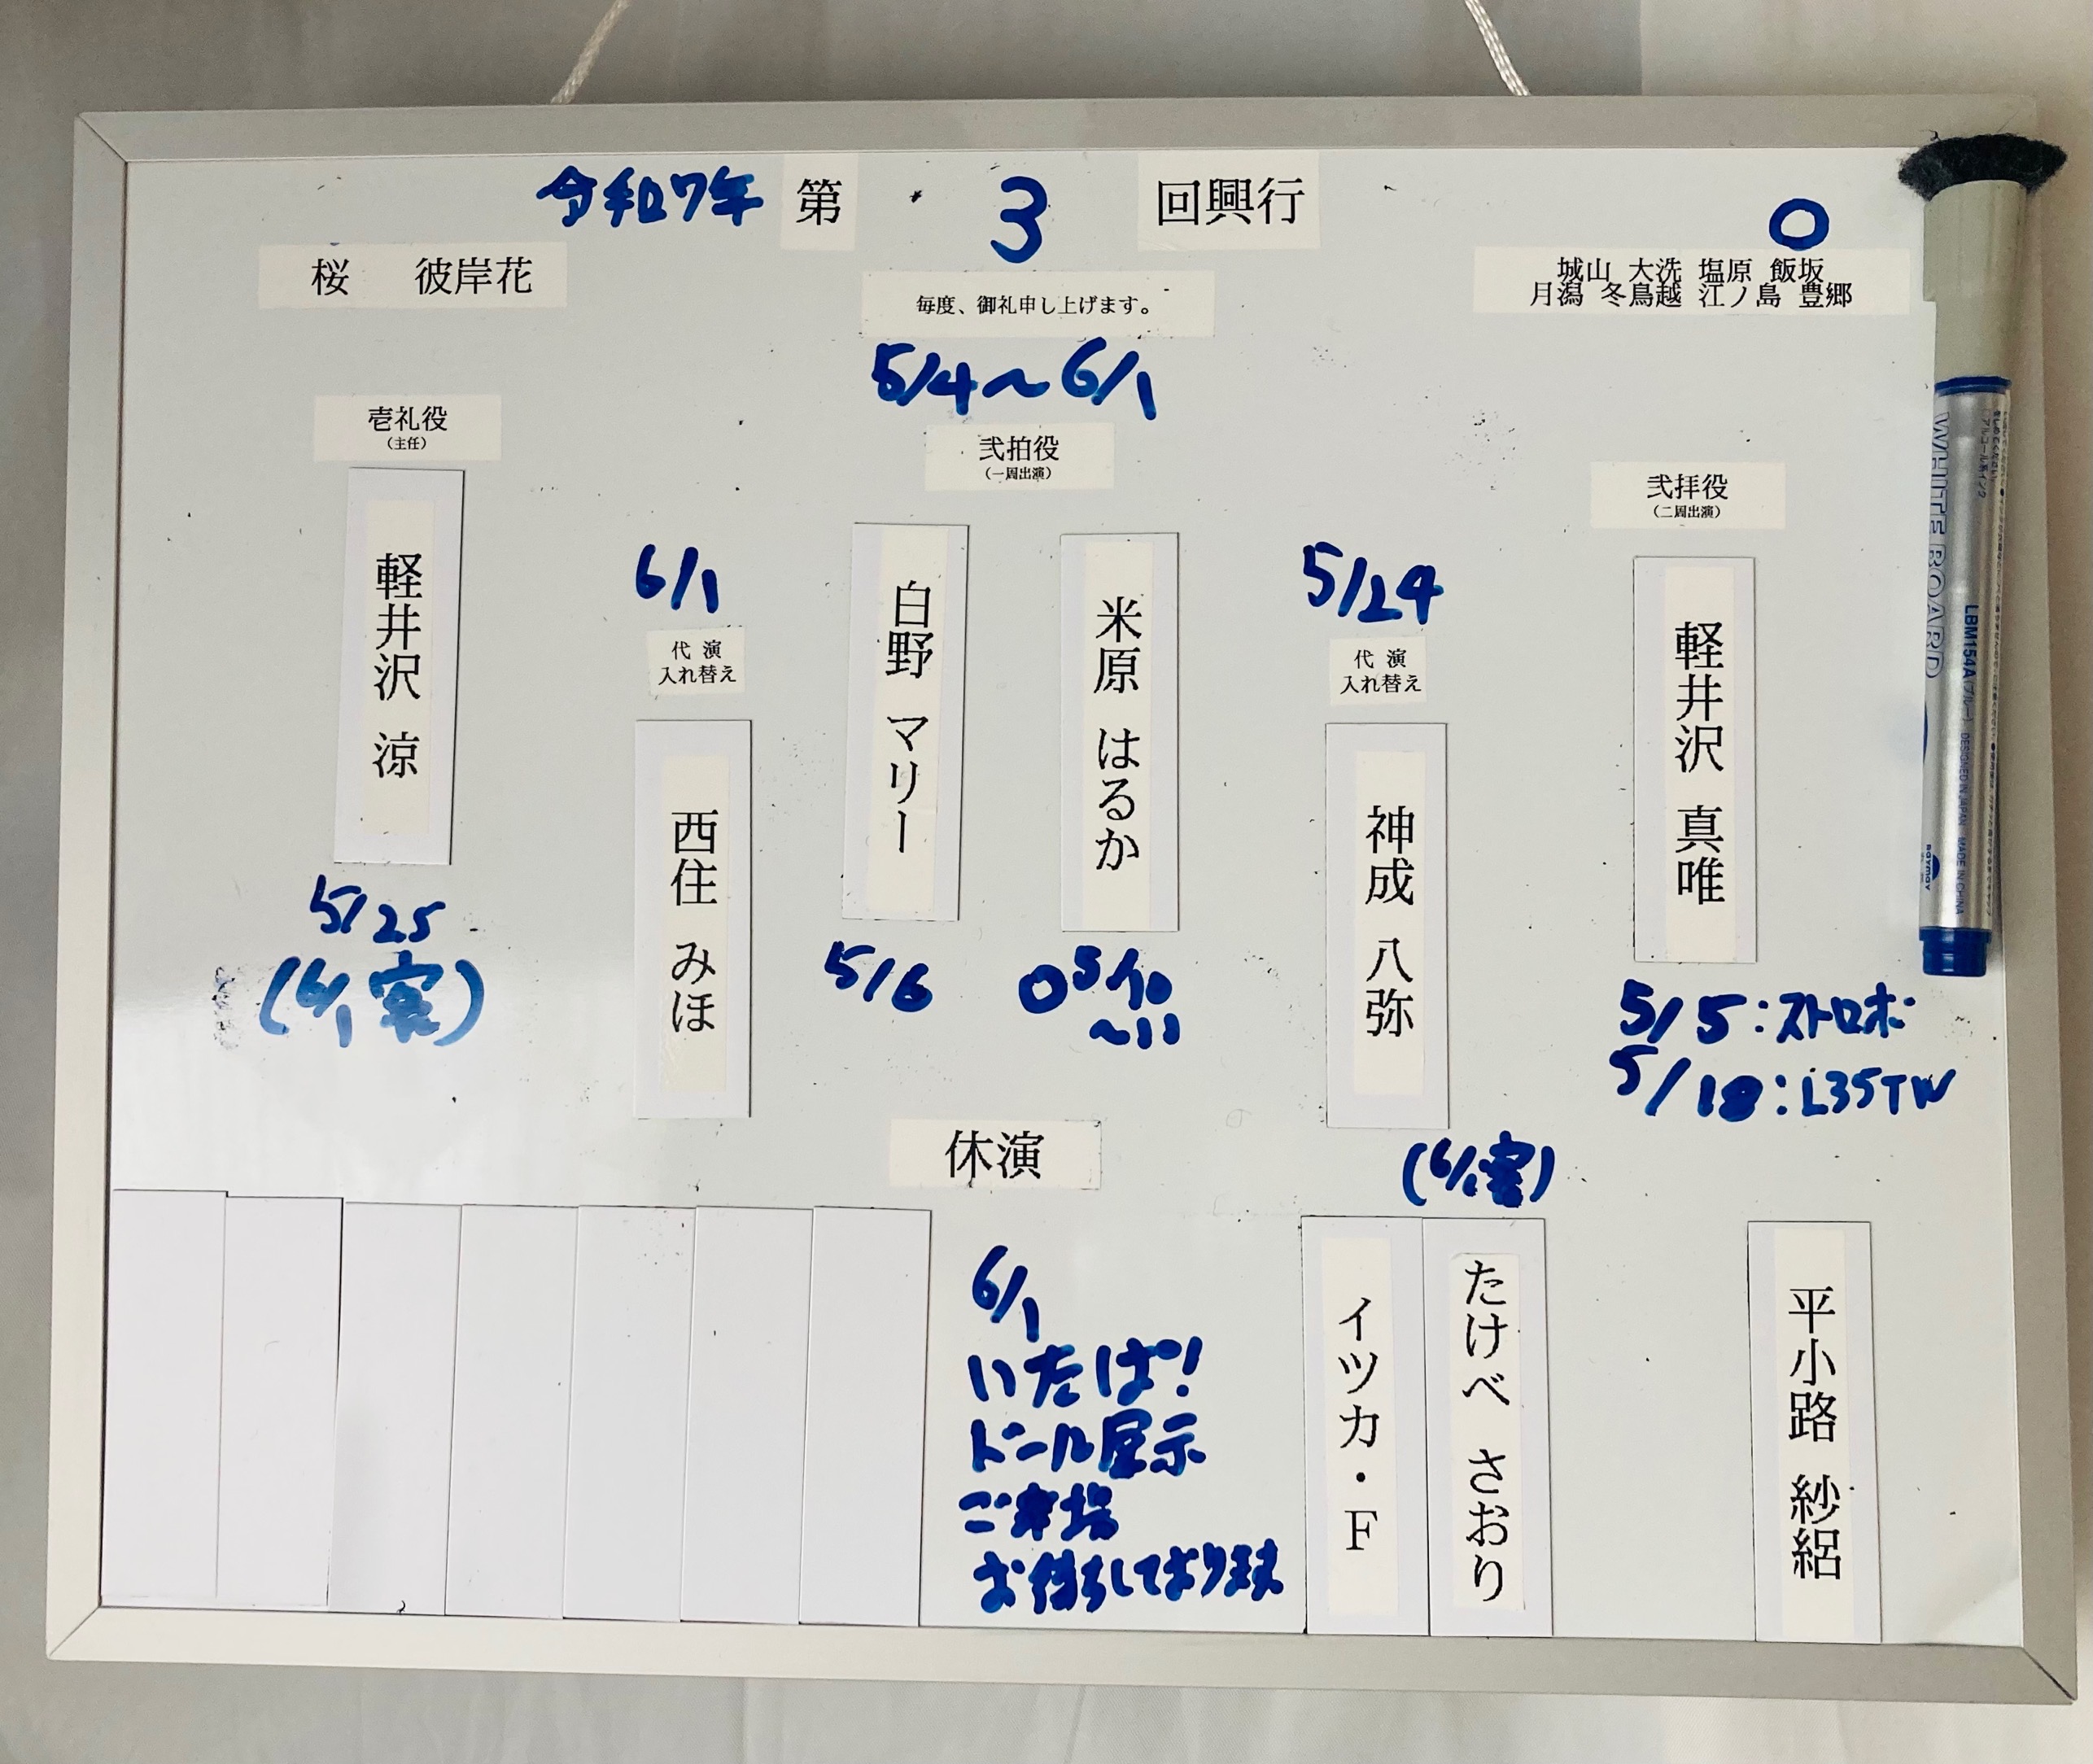 令和7年 第 3 回興行
桜 彼岸花
毎度、御礼申し上げます。
城山 大洗 塩原 飯坂
月潟 冬鳥越 江ノ島 豊郷
5/4〜6/1
壱礼役
（主任）
弐拍役
（一周出演）
弐拝役
（二周出演）
軽井沢 涼
5/25
(6/1客)
6/1
代演
入れ替え
西住 みほ
白野 マリー
5/6
米原 はるか
5/10
〜11
5/24
代演
入れ替え
神成 八弥
(6/1客)
軽井沢 真唯
5/5:ストロボ
5/18:L35TW
休演
6/1
いたば!
ドール展示
ご来場
お待ちしております
イツカ・F
たけべ さおり
平小路 紗絽
WHITE BOARD
LBM154A(ブルー) DESIGNED IN JAPAN MADE IN CHINA